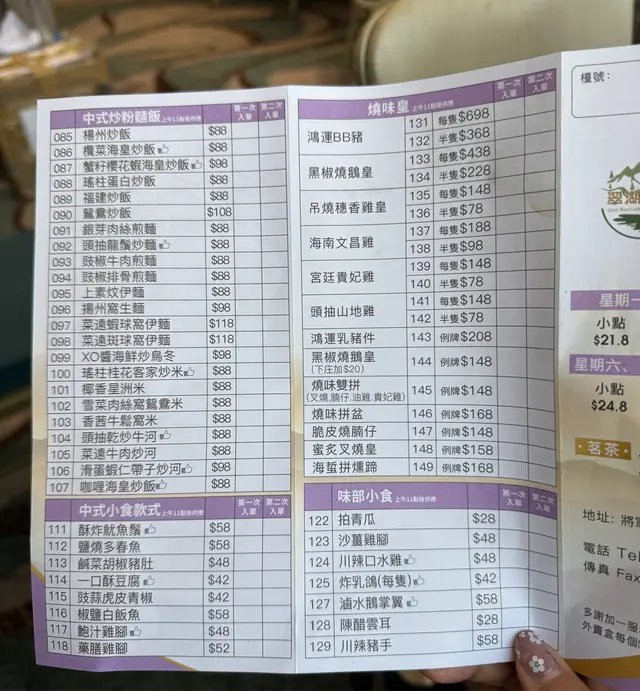 中式炒粉麵飯 上午11點後供應 第一次入單 第二次入單
085 楊州炒飯 $88
086 欖菜海皇炒飯 $88
087 蟹籽櫻花蝦海皇炒飯 $98
088 瑤柱蛋白炒飯 $88
089 福建炒飯 $88
090 鴛鴦炒飯 $108
091 銀芽肉絲煎麵 $88
092 頭抽龍鬚炒麵 $88
093 豉椒牛肉煎麵 $88
094 豉椒排骨煎麵 $88
095 上素炆伊麵 $88
096 揚州窩生麵 $98
097 菜遠蝦球窩伊麵 $118
098 菜遠斑球窩伊麵 $118
099 XO醬海鮮炒烏冬 $98
100 瑤柱桂花客家炒米 $88
101 椰香星洲米 $88
102 雪菜肉絲窩鴛鴦米 $88
103 香茜牛鬆窩米 $88
104 頭抽乾炒牛河 $88
105 菜遠牛肉炒河 $88
106 滑蛋蝦仁帶子炒河 $98
107 咖喱海皇炒飯 $88
中式小食款式 上午11點後供應 第一次入單 第二次入單
111 酥炸魷魚鬚 $58
112 鹽燒多春魚 $58
113 鹹菜胡椒豬肚 $48
114 一口酥豆腐 $42
115 豉蒜虎皮青椒 $42
116 椒鹽白飯魚 $58
117 鮑汁雞腳 $48
118 藥膳雞腳 $52
燒味皇 上午11點後供應 第一次入單 第二次入單
鴻運BB豬 131 每隻$698
132 半隻$368
黑椒燒鵝皇 133 每隻$438
134 半隻$228
吊燒穗香雞皇 135 每隻$148
136 半隻$78
海南文昌雞 137 每隻$188
138 半隻$98
宮廷貴妃雞 139 每隻$148
140 半隻$78
頭抽山地雞 141 每隻$148
142 半隻$78
鴻運乳豬件 143 例牌$208
黑椒燒鵝皇 144 例牌$148
(下庄加$20)
燒味雙拼 145 例牌$148
(叉燒,腩仔,油雞,貴妃雞)
燒味拼盆 146 例牌$168
脆皮燒腩仔 147 例牌$148
蜜炙叉燒皇 148 例牌$158
海蜇拼燻蹄 149 例牌$168
味部小食 上午11點後供應 第一次入單 第二次入單
122 拍青瓜 $28
123 沙薑雞腳 $48
124 川辣口水雞 $48
125 炸乳鴿(每隻) $42
127 滷水鵝掌翼 $58
128 陳醋雲耳 $28
129 川辣豬手 $58
檯號:
翠湖
星期一
小點
$21.8
星期六、
小點
$24.8
茗茶
地址: 將
電話 Tel
傳真 Fax
多謝加一服
外賣盒每個